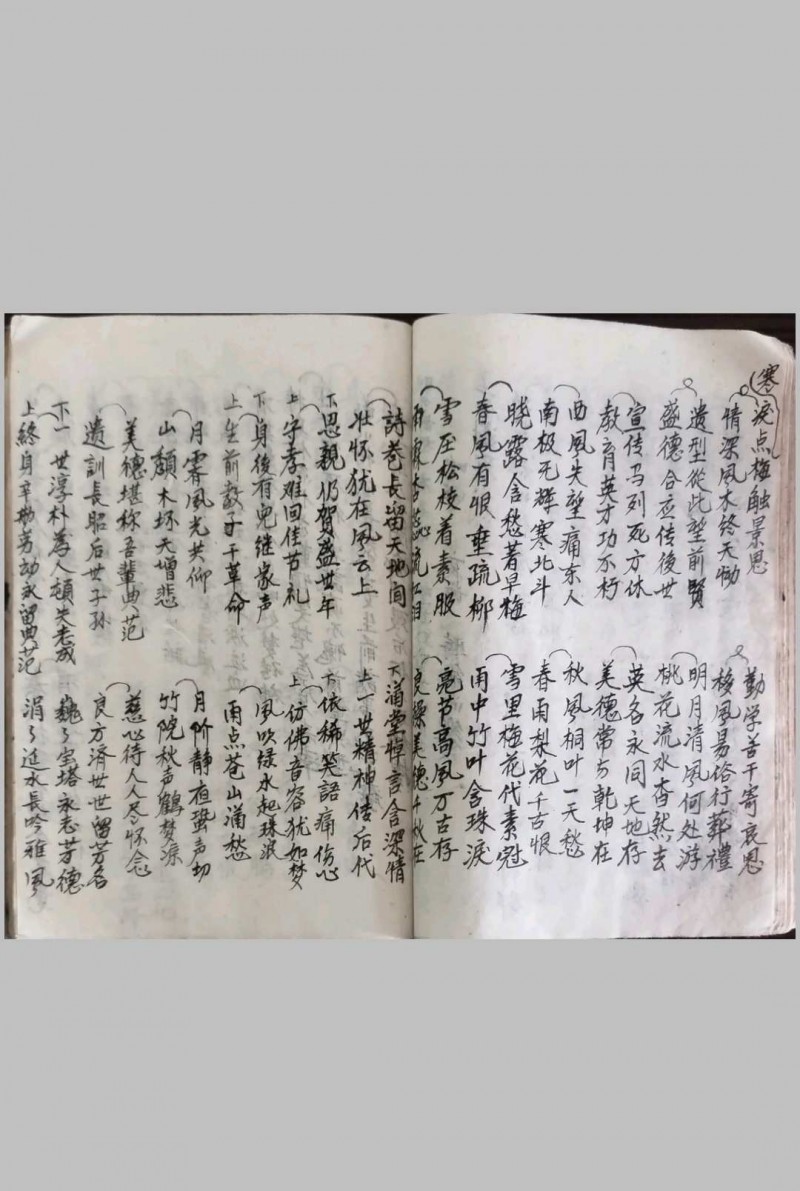 寒
淚点梅触景思
情深風木终天恸
遺型從此堃前賢
盛德合应传後世
宣传马列死方休
教育英才功不朽
西風失堃痛东人
南极无輝寒北斗
晓露含愁著早梅
春風有恨垂疏柳
雪压松枝着素服
詩卷長留天地间
壮怀犹在風云上
下思親仍賀盛世年
上守孝难回佳节礼
下身後有兒继家声
上生前教子干革命
月霽風光共仰
山頹木坏天增悲
美德堪称吾輩典范
遺訓長昭后世子孙
下一世淳朴為人顿失老成
上终身辛勤劳动永留典范
勤学苦干寄哀思
移風易俗行葬禮
明月清風何处游
桃花流水杳然去
英名永同天地存
美德常与乾坤在
秋風桐叶一天愁
春雨梨花千古恨
雪里梅花代素冠
雨中竹叶含珠淚
亮节高風万古存
良操美德千秋在
下满堂悼言含深情
上一世精神传后代
下依稀笑語痛伤心
上仿佛音容犹如梦
風吹绿水起珠浪
雨点苍山满愁
月阶静夜蛩声切
竹院秋声鶴梦凉
慈心待人人尽怀念
良方济世世留芳名
巍々宝塔永志芳德
涓々延水長吟雅風